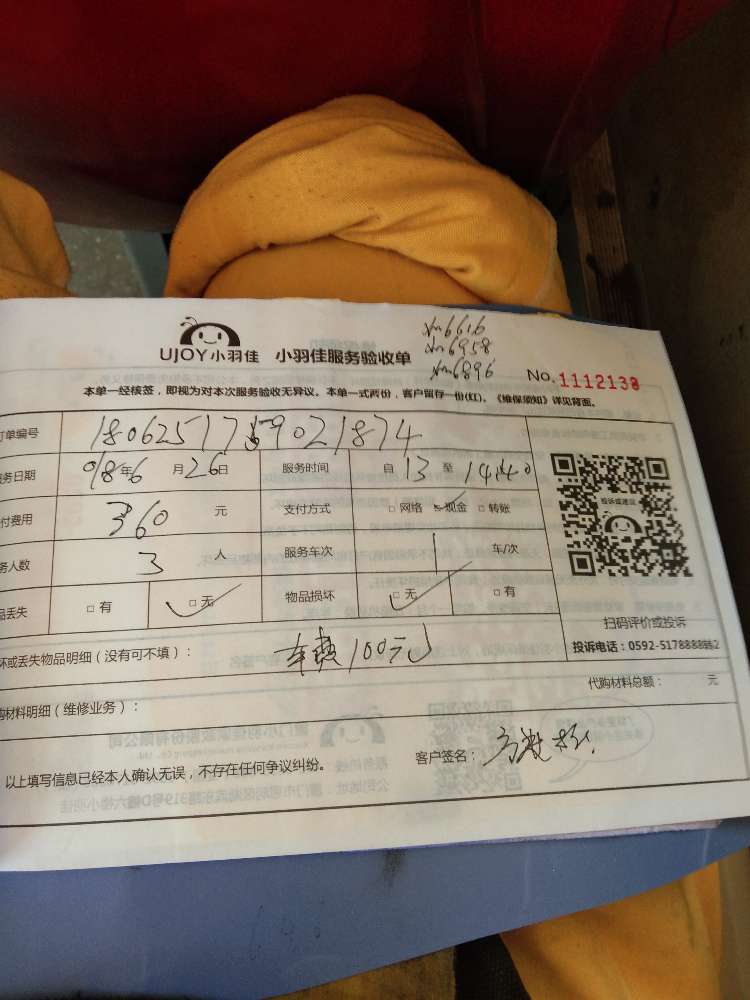 xm6616
xm6958
xm6896
UJOY小羽佳 小羽佳服务验收单
No.1112138
本单一经核签，即视为对本次服务验收无异议。本单一式两份，客户留存一份(红)。《维保须知》详见背面。
订单编号 1806251759021874
务日期 018年6月26日 服务时间 自13至14:40
付费用 360元 支付方式 □网络 ☑现金 □转账
务人数 3人 服务车次 1车/次
品丢失 □有 ☑无 物品损坏 ☑无 □有
投诉或建议
扫码评价或投诉
投诉电话：0592-5178888转2
坏或丢失物品明细（没有可不填）： 车费100元
代购材料总额： 元
购材料明细（维修业务）：
以上填写信息已经本人确认无误，不存在任何争议纠纷。 客户签名：